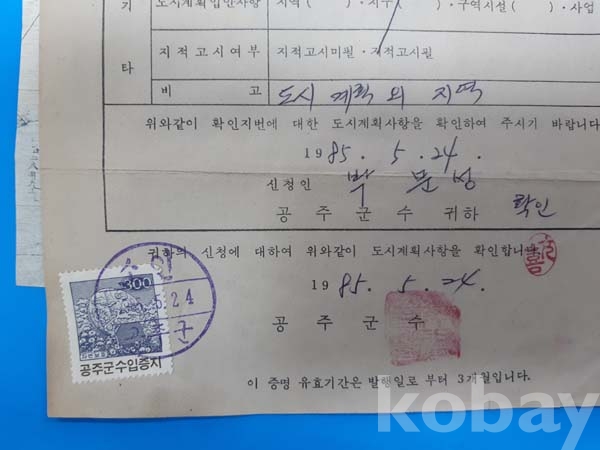 기 도시계획입안사항 지역( )·지구( )·구역시설( )·사업
타 지적고시여부 지적고시미필·지적고시필
비 고 도시 계획 외 지역
위와같이 확인지번에 대한 도시계획사항을 확인하여 주시기 바랍니다
1985. 5. 24.
신청인 박 문 성
공 주 군 수 귀 하 확인
귀하의 신청에 대하여 위와같이 도시계획사항을 확인합니다
1985. 5. 24.
공 주 군 수
300
5.24
군
공주군수입증지
이 증명 유효기간은 발행일로 부터 3개월입니다.
kobay